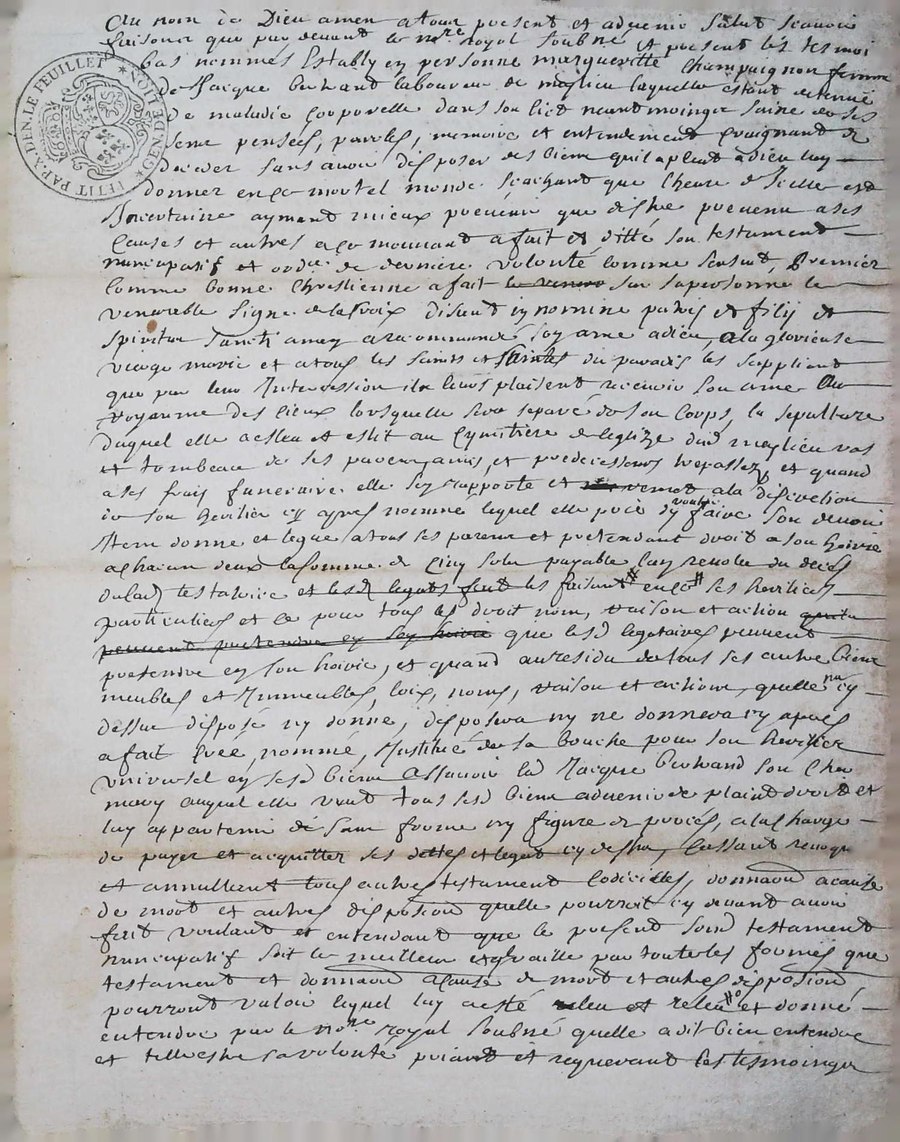 Au nom de Dieu amen a tour present et advenir salut scavoir
faisons que par devant le nre royal soubné et present les tesmoi
bas nommes Estably en personne margueritte Champaignon femme
de Jacque Bertrand laboureur de maglieu laquelle estant detenue
de maladie corporelle dans son lict neantmoings saine de ses
sens pensées, parolles, memoire et entendement craignant de
deceder sans avoir desposer des biens quil a pleut a dieu luy
donner en ce mortel monde scachant que lheure dIcelle est
Incertaine aymant mieux prevenir que destre prevenu a ses
causes et autres a ce mouvant a fait et ditté son testament
nuncupatif et ordre de derniere volonté comme sensuit, Premier
comme bonne Chrestienne a fait le vener sur sa personne le
venerable signe de la Croix disant in nomine patris et filij et
spiritus sancti amen a recommandé soy ame a dieu, a la glorieuse
vierge marie et a tous les saints et saintes du paradis les suppliant
que par leur Intercession il leurs plaisent recevoir son ame au
royaume des cieux lorsquelle sera separé de son corps, la sepulture
duquel elle a esleu et eslit au cymitière de leglize dud maglieu vas
et tombeau de ses parens amis, et predecesseurs trepassez, et quand
a ses frais funeraire elle sen rapporte et a la discretion
de son heritier cy apres nommé lequel elle prie dy vouloir faire son devoir
Item donne et legue a tous ses parens et pretendant droit a son hoirie
a chacun deux la somme de cinq solz payable lan revolu du deces
de lad testatrice et lesd legats fait les faisant # en ce # ses heritiers
particuliers et ce pour tous les droit nom, raison et action quils
peuvent pretendre en son hoirie que lesd legataires peuvent
pretendre en son hoirie, et quand au residu de tous ses autre biens
meubles et Immeubles, loix, noms, raison et actions, quelle na cy
dessus disposé ny donné, desposera ny ne donnera cy apres
a fait créé, nommé, Institué de sa bouche pour son heritier
universel en sesd biens assavoir led Jacque Bertrand son cher
mary auquel elle veut tous sesd biens advenir de plaint droit et
luy appartenir de sans forme ny figure de procés, a la charge
de payer et acquitter ses dettes et legat cy dessus, cassant revoqu
et annullant tous autres testament codicilles, donnaon a cause
de mort et autres disposion quelle pourroit cy devant avoir
fait voulant et entendant que le present soind testament
nuncupatif soit le meilleur et quil vaille par toutes les formes que
testament et donnaon a cause de mort et autres disposion
pourront valoir lequel luy a esté releu et releu #o et donné
entendre par le nore royal soubné quelle a dit bien entendre
et telle estre sa volonté priant et requerant les tesmoings
PETIT PAP. A DEN. LE FEUILLET